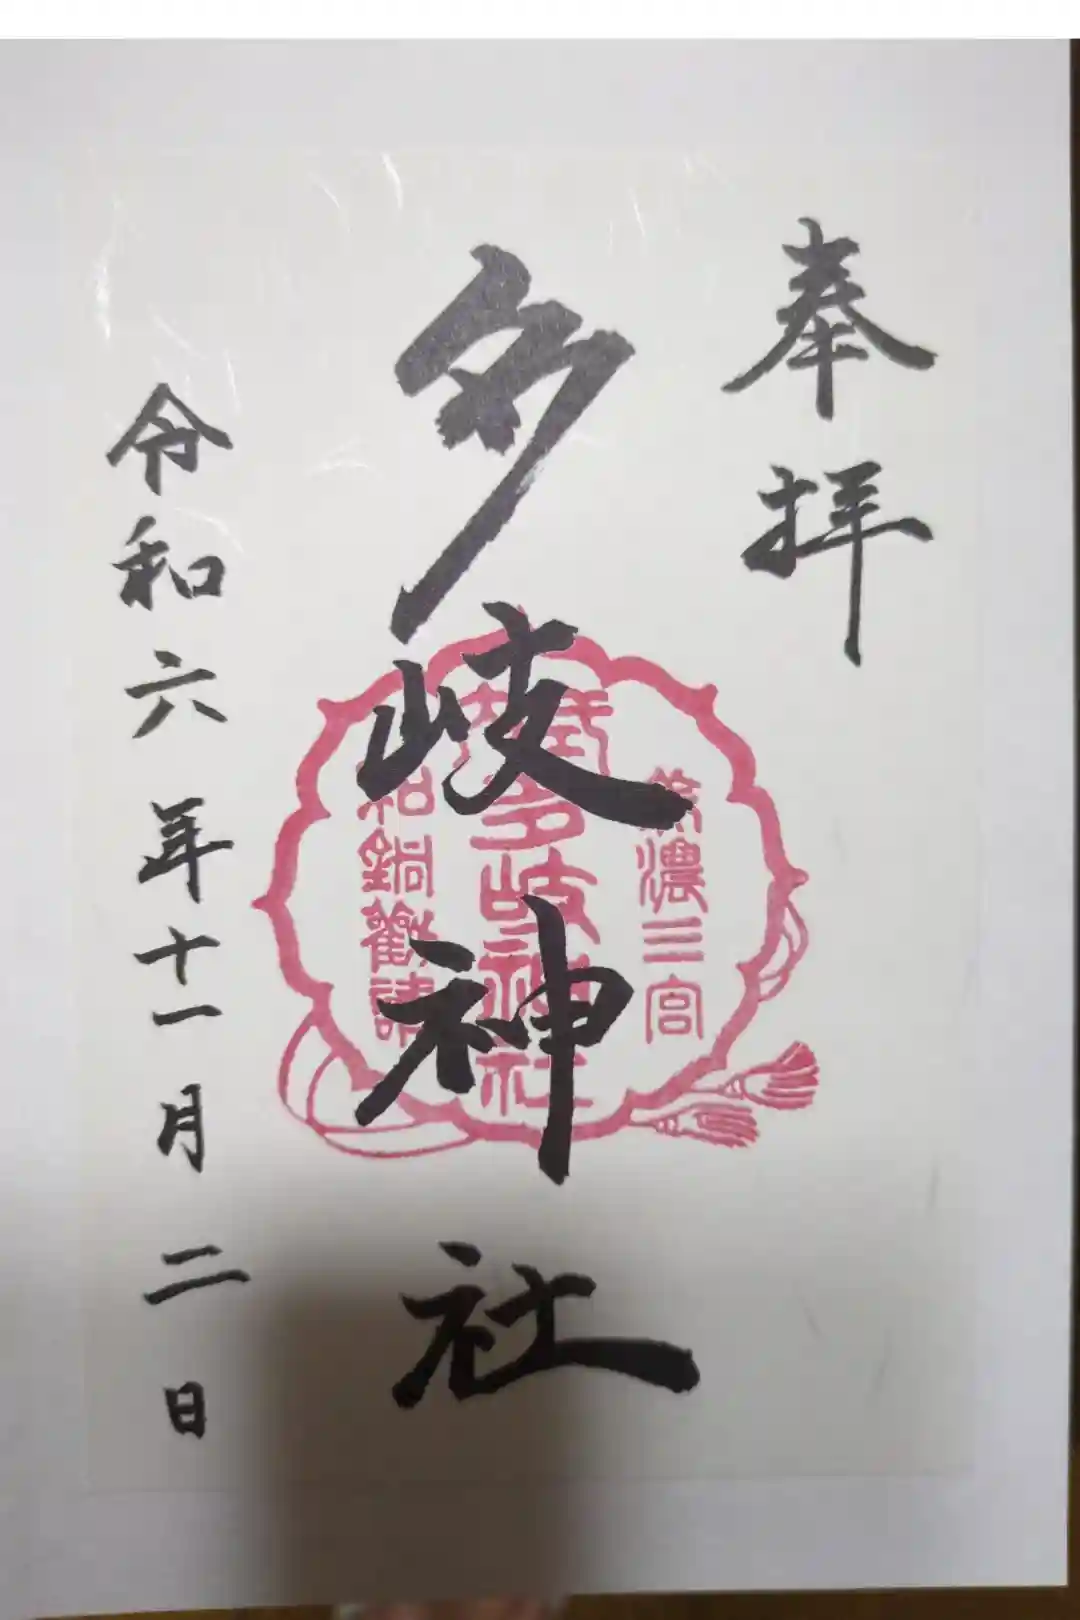 奉拝
濃三宮
多岐神社
多岐神社
和銅勸請
令和六年十一月二日